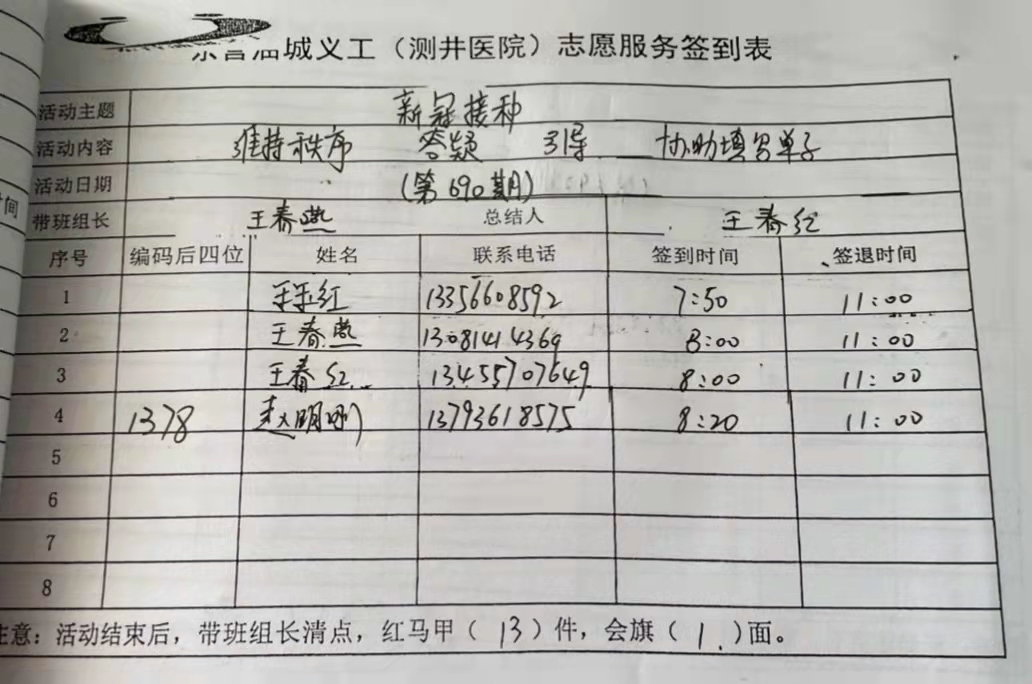 东营油城义工（测井医院）志愿服务签到表
活动主题 新冠接种
活动内容 维持秩序 答疑 引导 协助填写单子
活动日期 （第690期）
带班组长 王春燕 总结人 王春红
序号 编码后四位 姓名 联系电话 签到时间 签退时间
1 王玉红 13356608592 7:50 11:00
2 王春燕 13081414369 8:00 11:00
3 王春红 13455707649 8:00 11:00
4 1378 赵明刚 13793618575 8:20 11:00
5
6
7
8
注意：活动结束后，带班组长清点，红马甲（13）件，会旗（1）面。
时间